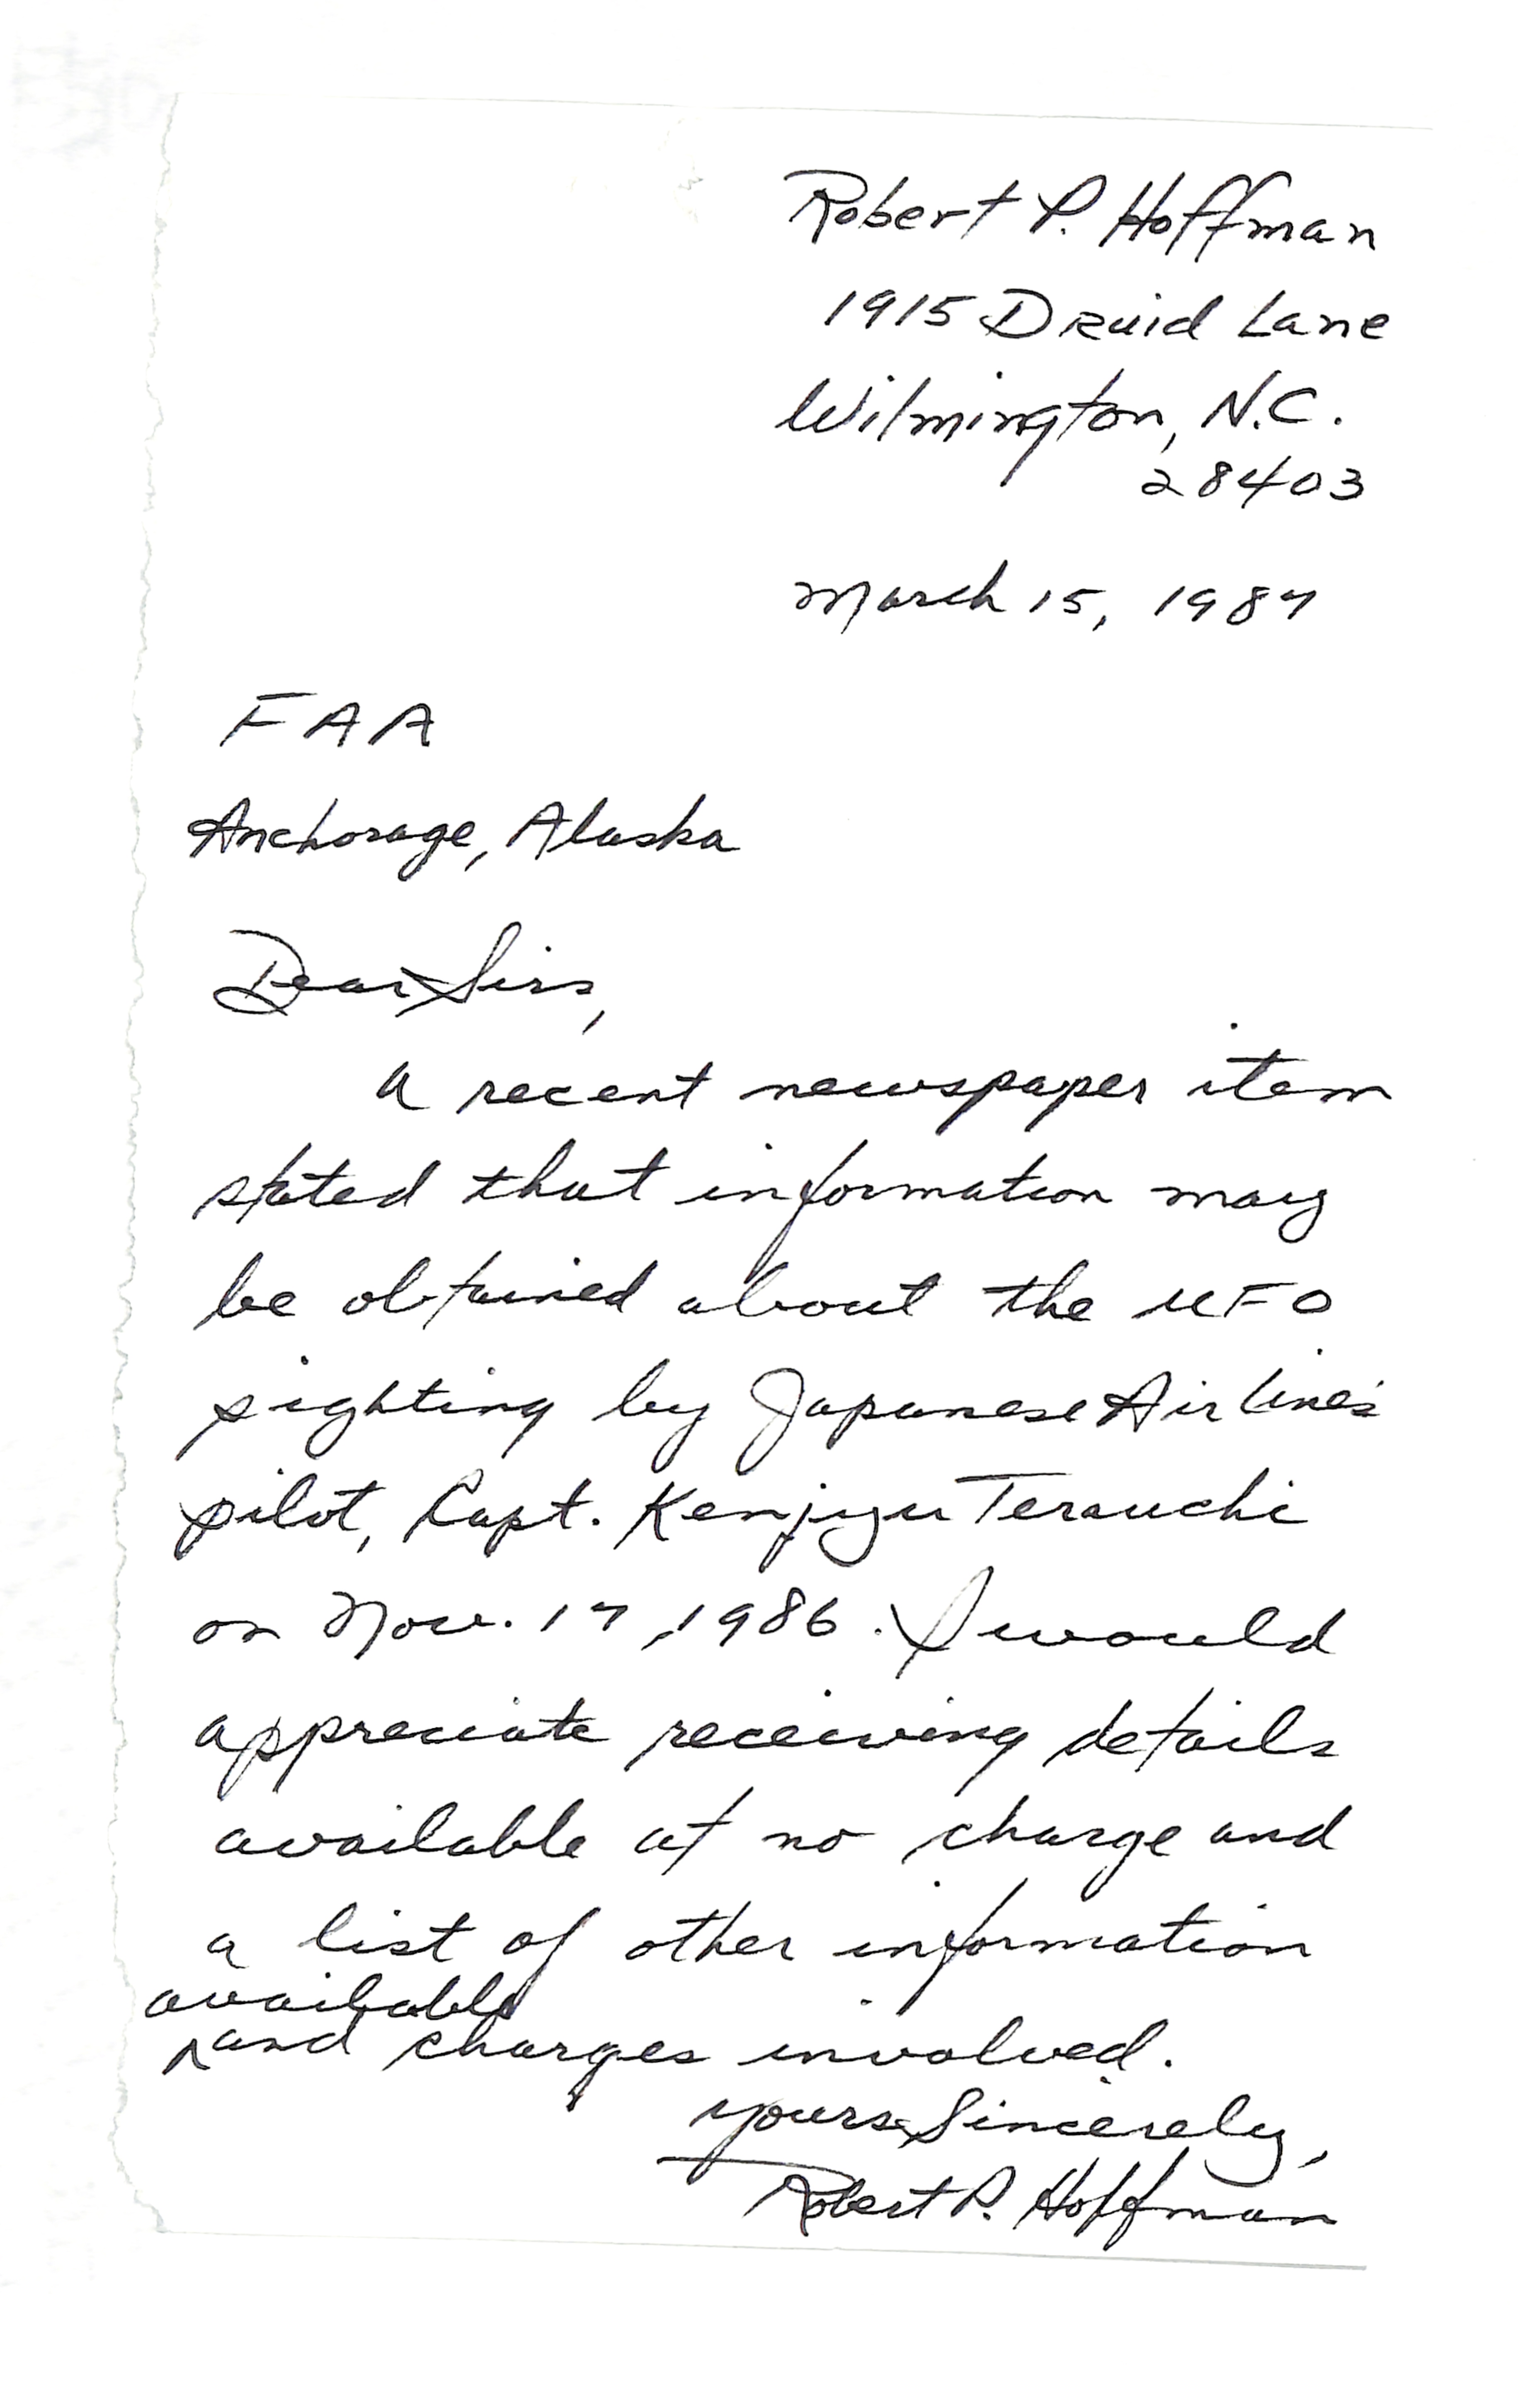 Robert P. Hoffman
1915 Druid Lane
Wilmington, N.C.
28403
March 15, 1987
FAA
Anchorage, Alaska
Dear Sirs,
A recent newspaper item
stated that information may
be obtained about the UFO
sighting by Japanese Air Line's
pilot, Capt. Kenjyu Terauchi
on Nov. 17, 1986. I would
appreciate receiving details
available at no charge and
a list of other information
available
^and charges involved.
Yours Sincerely,
Robert P. Hoffman